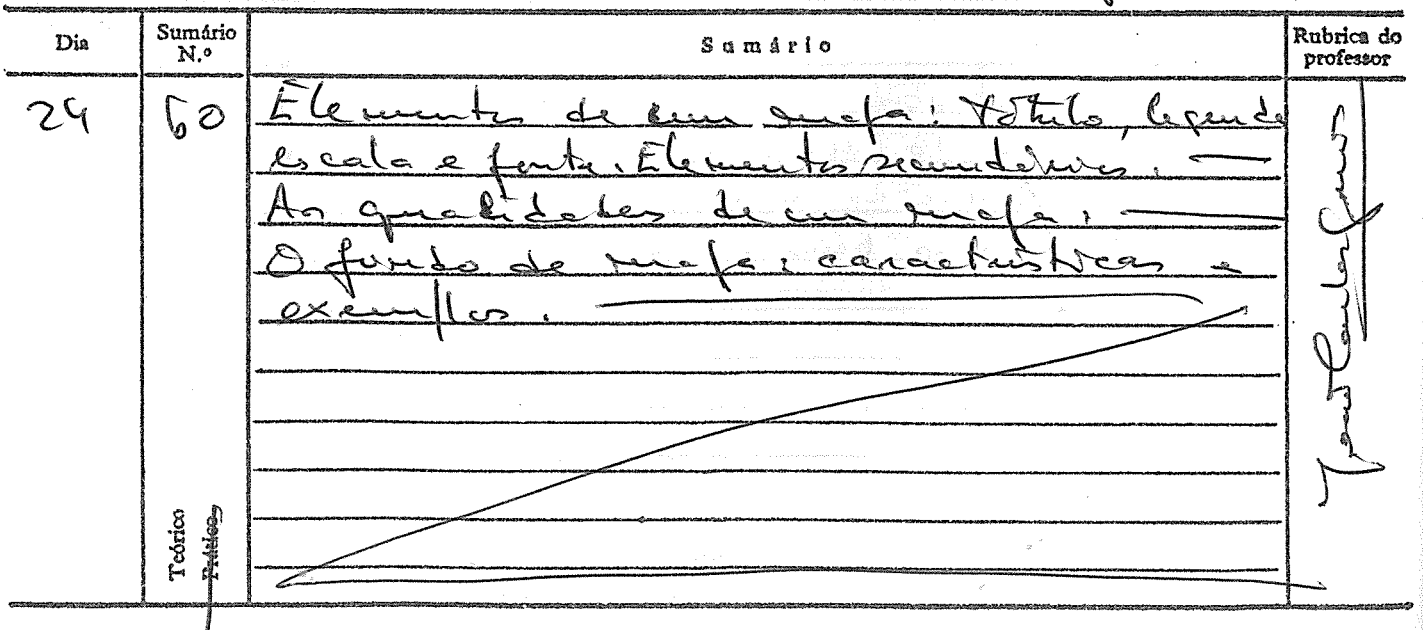 Dia
Sumário N.º
Sumário
Rubrica do professor
24
60
Elementos de um mapa: título, legenda
escala e fonte. Elementos secundários.
As qualidades de um mapa.
O fundo de mapa: características e
exemplos.
Teórico
Prático